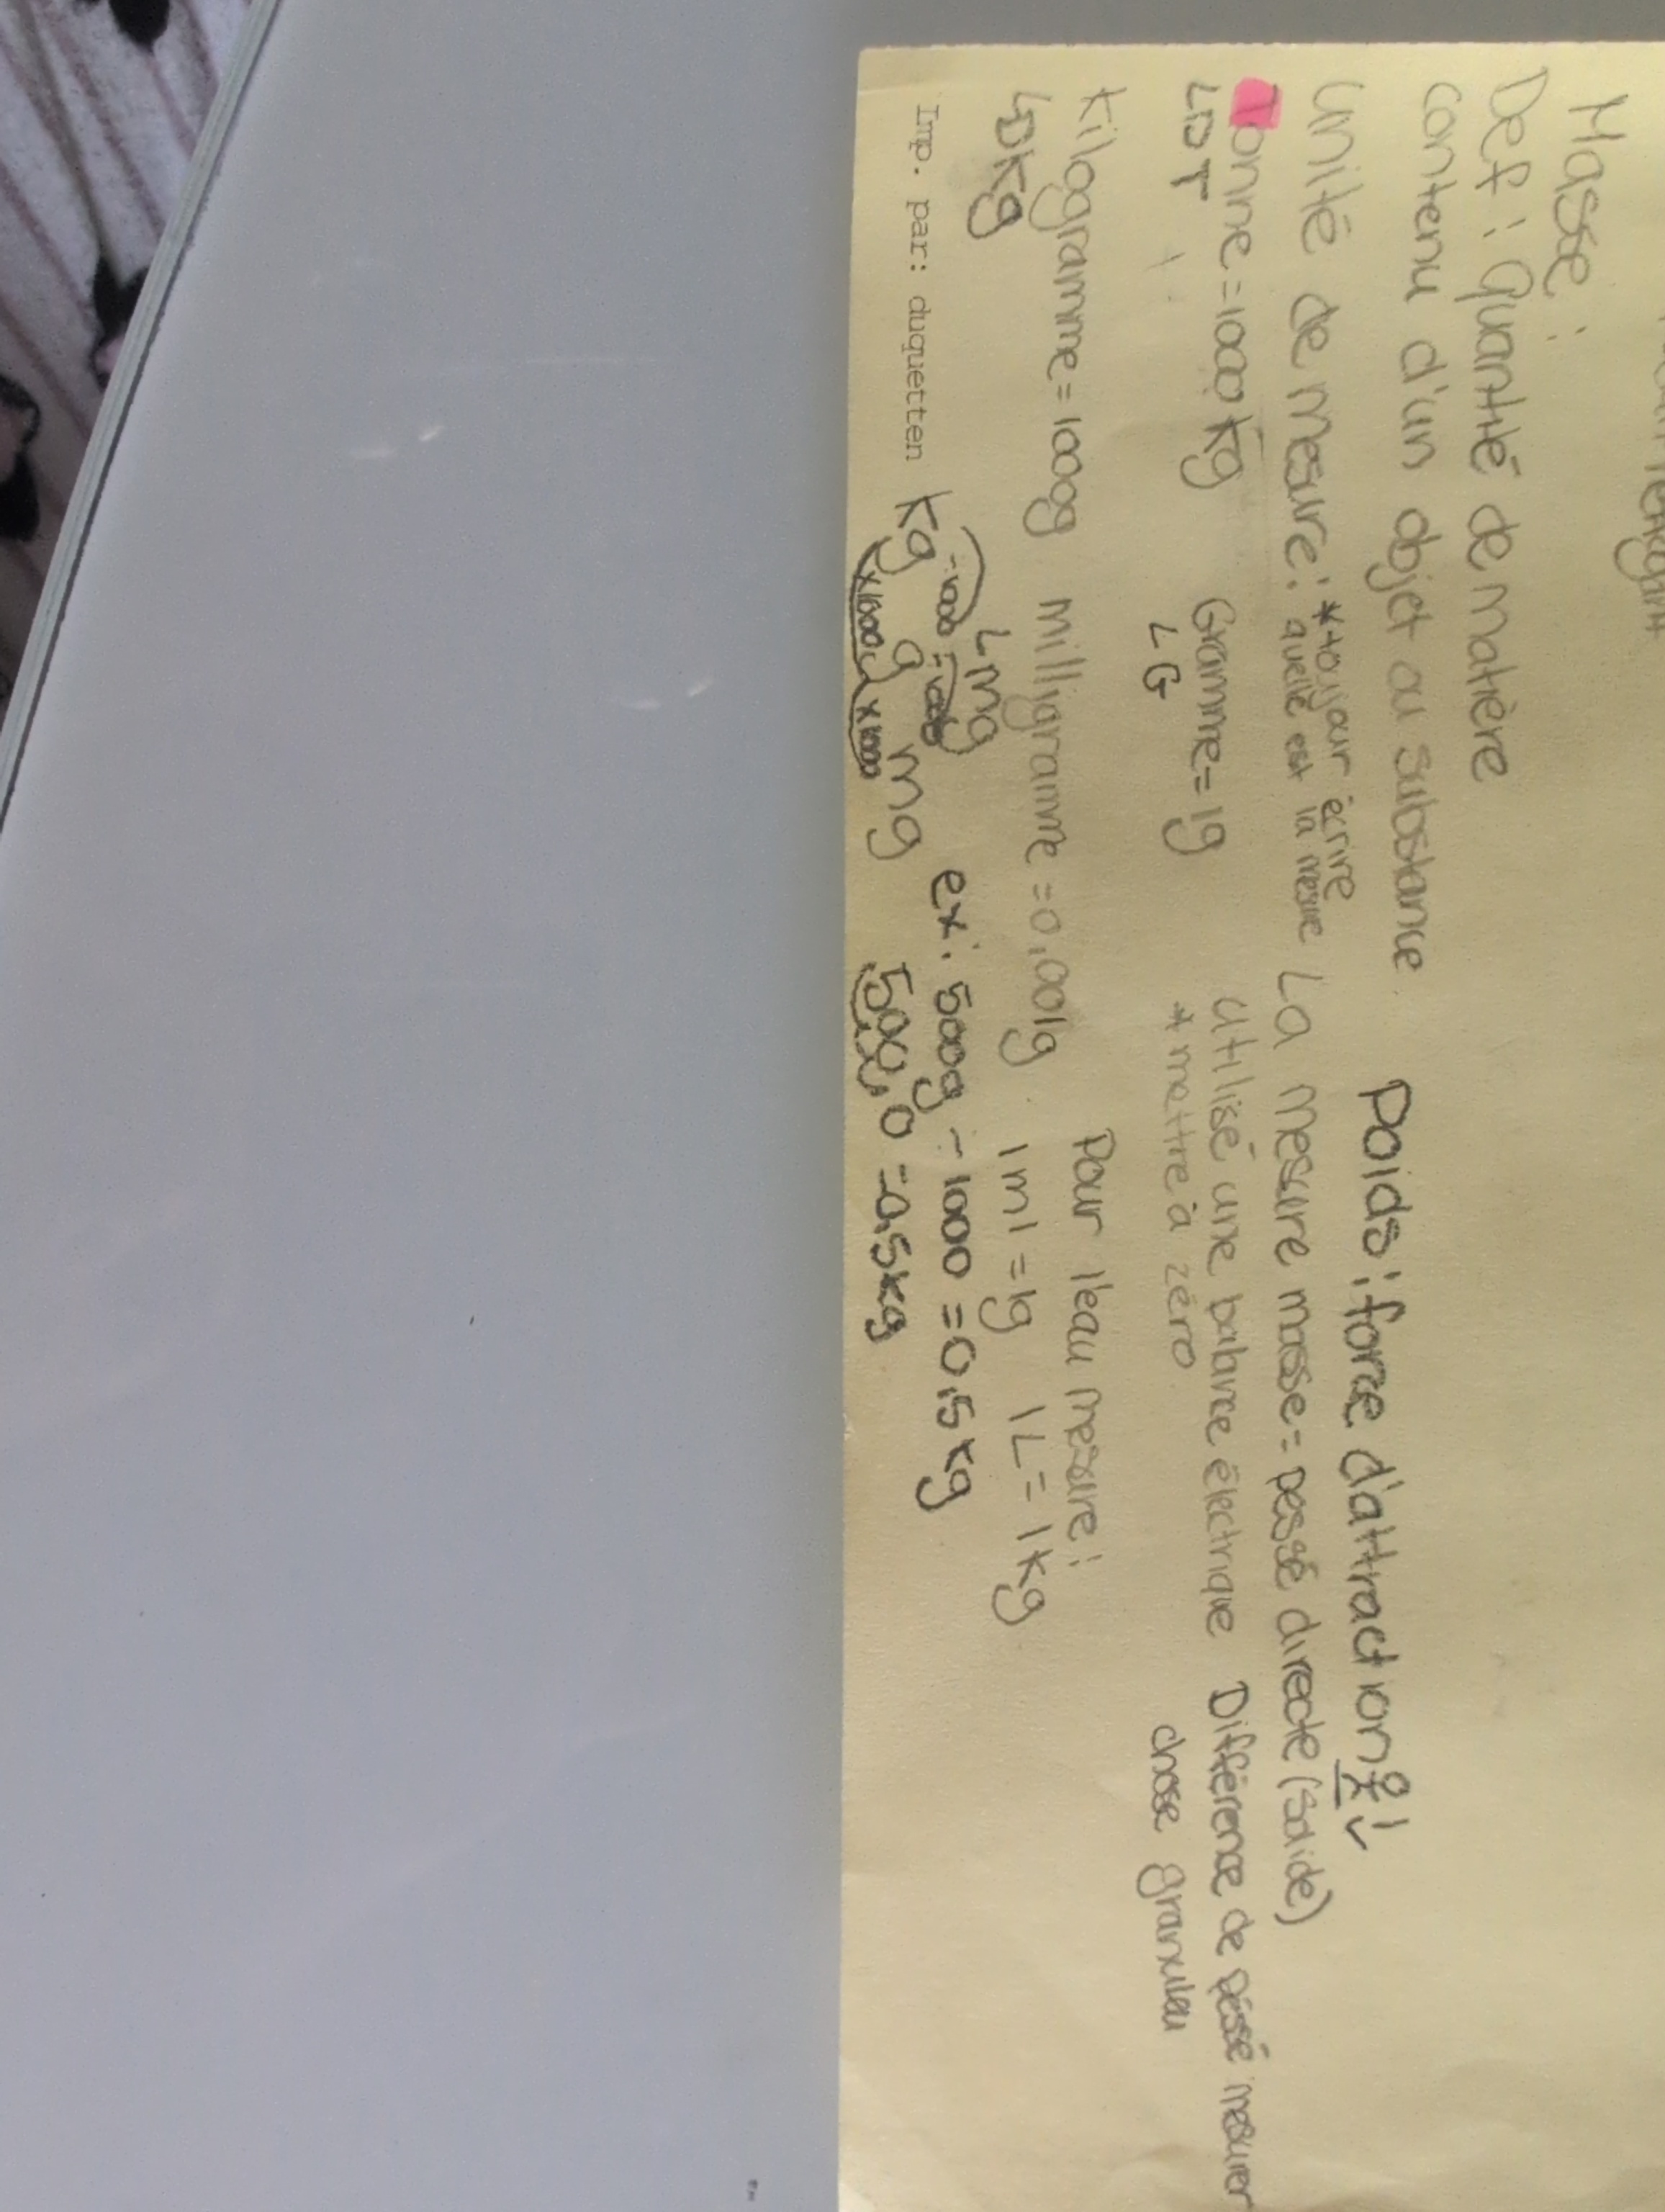 Masse:
Def: Quantité de matière
contenu d'un objet ou substance
Poids: force d'attraction
Unité de mesure: *toujour écrire
quelle est la mesure
La mesure masse = pessé directe (solide)
Tonne = 1000 kg
Gramme = 1g
utilisé une balance électrique
Différence de péssé mesurer
T
G
* mettre à zéro
chose granulau
Kilogramme = 1000g
milligramme = 0,001g
Pour l'eau mesure:
kg
mg
1 ml = 1g 1L = 1 kg
÷1000 ÷1000
ex: 500g ÷ 1000 = 0,5 kg
Imp. par: duquetten
kg g mg
500,0 = 0,5 kg
x1000 x1000